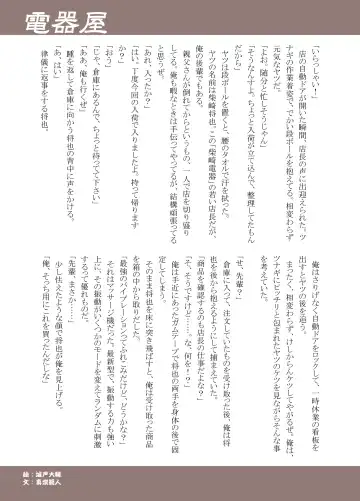 電器屋
「いらっしゃいー！」
店の自動ドアが開いた瞬間、店長の声に出迎えられた。ツ
ナギの作業着姿で、でかい段ボールを抱えてる。相変わらず
元気なヤツだ。
「よお、随分と忙しそうじゃん」
「そうなんすよ。ちょっと入荷が立て込んで、整理してたもん
だから」
ヤツは段ボールを置くと、腰のタオルで汗を拭った。
ヤツの名前は柴崎将也。この「柴崎電器」の若い店長だが、
俺の後輩でもある。
親父さんが倒れてからというもの、一人で店を切り盛り
してる。俺も暇なときは手伝ってやってるが、結構頑張ってる
と思うぜ。
「あれ、入ったか？」
「はい、丁度今回の入荷で入りましたよ。持って帰ります
か？」
「おう」
「じゃ、倉庫にあるんで、ちょっと待ってて下さい」
「ああ、俺も行くぜ」
踵を返して倉庫に向かう将也の背中に声をかける。
「あ、はい」
律儀に返事をする将也。
俺はさりげなく自動ドアをロックして、一時休業の看板を
出すとヤツの後を追う。
まったく、相変わらず、けしからんケツしてやがるぜ。俺は、
ツナギにピッチリと包まれたヤツのケツを見ながらそんな事
を考えていた。
「せ、先輩？」
倉庫に入って、注文していたものを受け取った後、俺は将
也を後から抱えこむようにして捕まえていた。
「商品を確認するのも店長の仕事だよな？」
「な、そうですけど……な、何を！？」
俺は手近にあったガムテープで将也の両手を身体の後で固
定してしまう。
そのまま将也を床に突き飛ばすと、俺は受け取った商品
を箱の中から取りだした。
「最強のバイブレーションってふれこみだけど、どうかな？」
それはマッサージ機だった。最新型で、振動する力も強い
上に、その振動がいくつかのモードを変えてランダムに刺激
するって優れものだ。
「先輩、まさか……」
少し怯えたような顔で将也が俺を見上げる。
「俺、そっち用にこれを買ったんだしな」
絵：瀬戸大輔
文：喜多範人